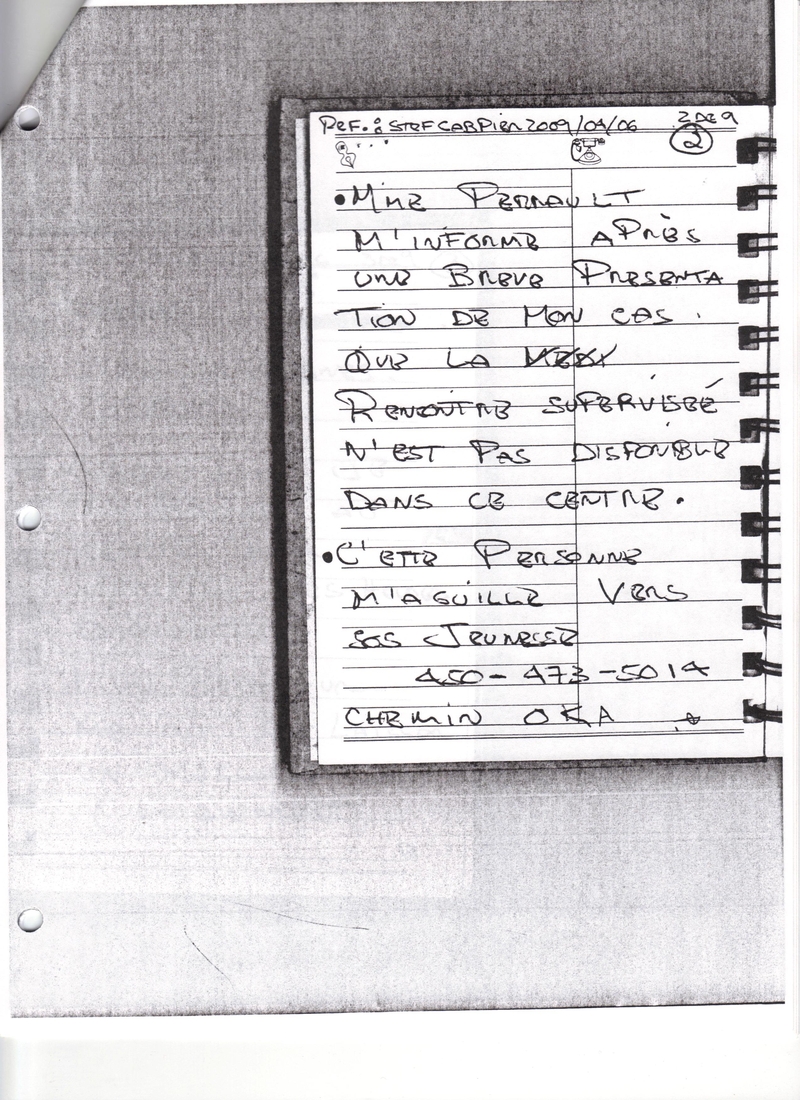 REF. : STEF CARPIER 2009/04/06 2 DE 9
2
• MME PERRAULT
M'INFORME APRÈS
UNE BREVE PRESENTA
TION DE MON CAS.
QUE LA
RENCONTRE SUPERVISÉE
N'EST PAS DISPONIBLE
DANS CE CENTRE.
• C'ETTE PERSONNE
M'AGUILLE VERS
SOS JEUNESSE
450-473-5014
CHEMIN OKA